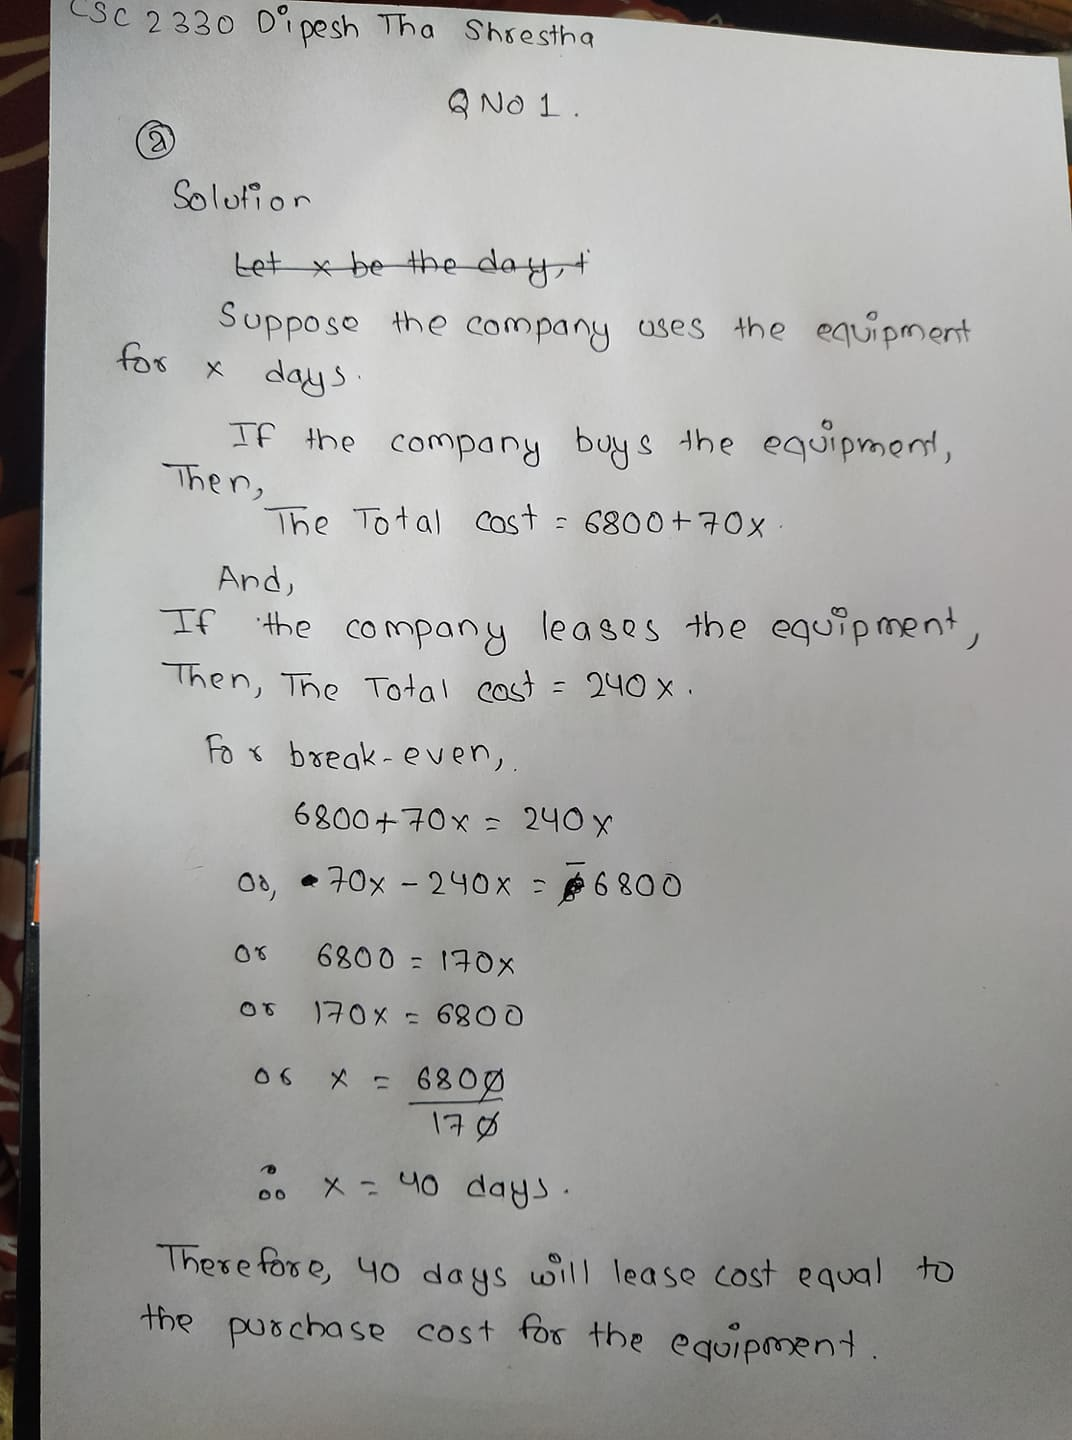 CSC 2330 Dipesh Tha Shrestha
Q NO 1.
a
Solution
Let x be the day, t
Suppose the company uses the equipment
for x days.
If the company buys the equipment,
Then,
The Total cost = 6800+70x.
And,
If the company leases the equipment,
Then, The Total cost = 240x.
For break-even,
6800+70x = 240x
Or, 70x - 240x = -6800
or 6800 = 170x
or 170x = 6800
or x = 6800
170
∴ x = 40 days.
Therefore, 40 days will lease cost equal to
the purchase cost for the equipment.